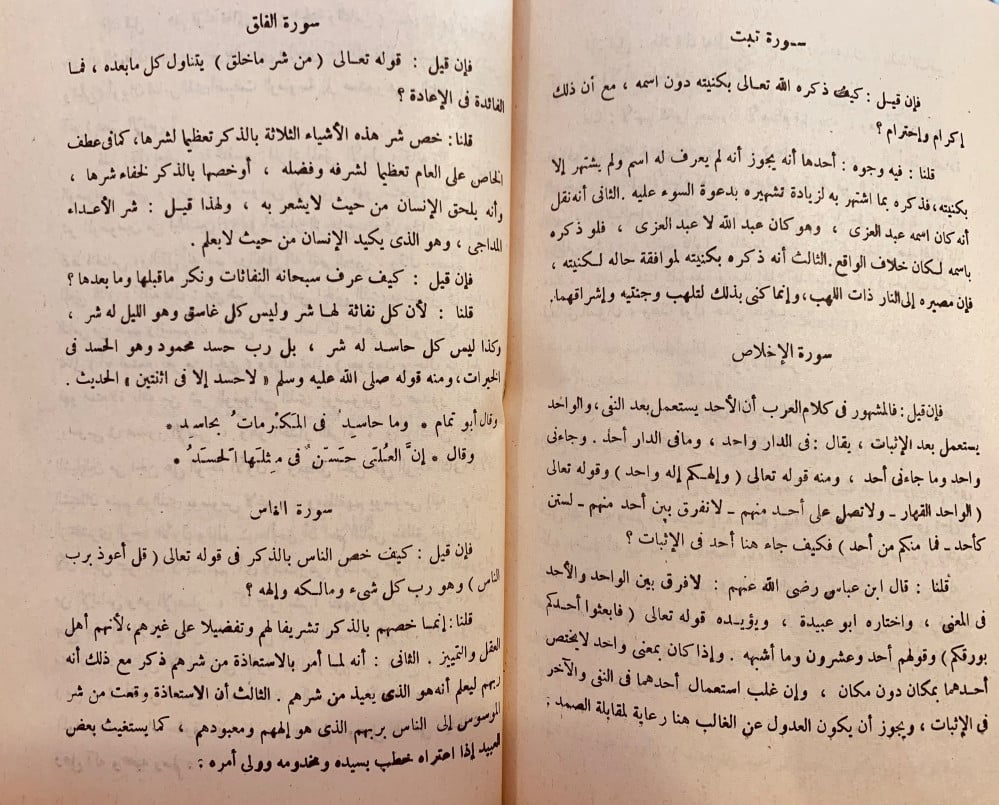 سورة تبت
فإن قيل : كيف ذكره الله تعالى بكنيته دون اسمه ، مع أن ذلك
إكرام واحترام ؟
قلنا : فيه وجوه : أحدها أنه يجوز أنه لم يعرف له اسم ولم يشتهر إلا
بكنيته، فذكره بما اشتهر به لزيادة تشهيره بدعوة السوء عليه . الثانى أنه نقل
أنه كان اسمه عبد العزى ، وهو كان عبد الله لا عبد العزى ، فلو ذكره
باسمه لكان خلاف الواقع. الثالث أنه ذكره بكنيته لموافقة حاله لكنيته ،
فإن مصيره إلى النار ذات اللهب، وإنما كنى بذلك لتلهب وجنتيه وإشراقهما.
سورة الإخلاص
فإن قيل : فالمشهور فى كلام العرب أن الأحد يستعمل بعد النفى، والواحد
يستعمل بعد الإثبات ، يقال : فى الدار واحد ، ومافى الدار أحد . وجاءنى
واحد وما جاءنى أحد ، ومنه قوله تعالى ( وإلهكم إله واحد ) وقوله تعالى
( الواحد القهار ـ ولاتصل على أحد منهم ـ لانفرق بين أحد منهم ـ لستن
كأحد ـ فما منكم من أحد ) فكيف جاء هنا أحد فى الإثبات ؟
قلنا : قال ابن عباس رضى الله عنهم : لافرق بين الواحد والأحد
فى المعنى ، واختاره ابو عبيدة ، ويؤيده قوله تعالى ( فابعثوا أحدكم
بورقكم ) وقولهم أحد وعشرون وما أشبهه . وإذا كان بمعنى واحد لايختص
أحدهما بمكان دون مكان ، وإن غلب استعمال أحدهما فى النفى والآخر
فى الإثبات ، ويجوز أن يكون العدول عن الغالب هنا رعاية لمقابلة الصمد .
سورة الفلق
فإن قيل : قوله تعالى ( من شر ماخلق ) يتناول كل مابعده ، فما
الفائدة فى الإعادة ؟
قلنا : خص شر هذه الأشياء الثلاثة بالذكر تعظيما لشرها، كمافى عطف
الخاص على العام تعظيما لشرفه وفضله ، أوخصها بالذكر لخفاء شرها ،
وأنه يلحق الإنسان من حيث لايشعر به ، ولهذا قيل : شر الأعداء
المداجى ، وهو الذى يكيد الإنسان من حيث لايعلم .
فإن قيل : كيف عرف سبحانه النفاثات ونكر ماقبلها وما بعدها ؟
قلنا : لأن كل نفاثة لها شر وليس كل غاسق وهو الليل له شر ،
وكذا ليس كل حاسد له شر ، بل رب حسد محمود وهو الحسد فى
الخيرات، ومنه قوله صلى الله عليه وسلم « لاحسد إلا فى اثنتين » الحديث .
وقال أبو تمام * وما حاسِدٌ فى المَكْرُماتِ بحاسِدِ *
وقال * إنَّ العُلَى حَسَنٌ فى مِثلِها الحَسَدُ *
سورة الناس
فإن قيل : كيف خص الناس بالذكر فى قوله تعالى ( قل أعوذ برب
الناس ) وهو رب كل شىء ومالكه وإلهه ؟
قلنا : إنما خصهم بالذكر تشريفا لهم وتفضيلا على غيرهم، لأنهم أهل
العقل والتمييز . الثانى : أنه لما أمر بالاستعاذة من شرهم ذكر مع ذلك أنه
ربهم ليعلم أنه هو الذى يعيذ من شرهم . الثالث أن الاستعاذة وقعت من شر
الموسوس إلى الناس بربهم الذى هو إلههم ومعبودهم ، كما يستغيث بعض
العبيد إذا اعتراه خطب بسيده ومخدومه وولى أمره .